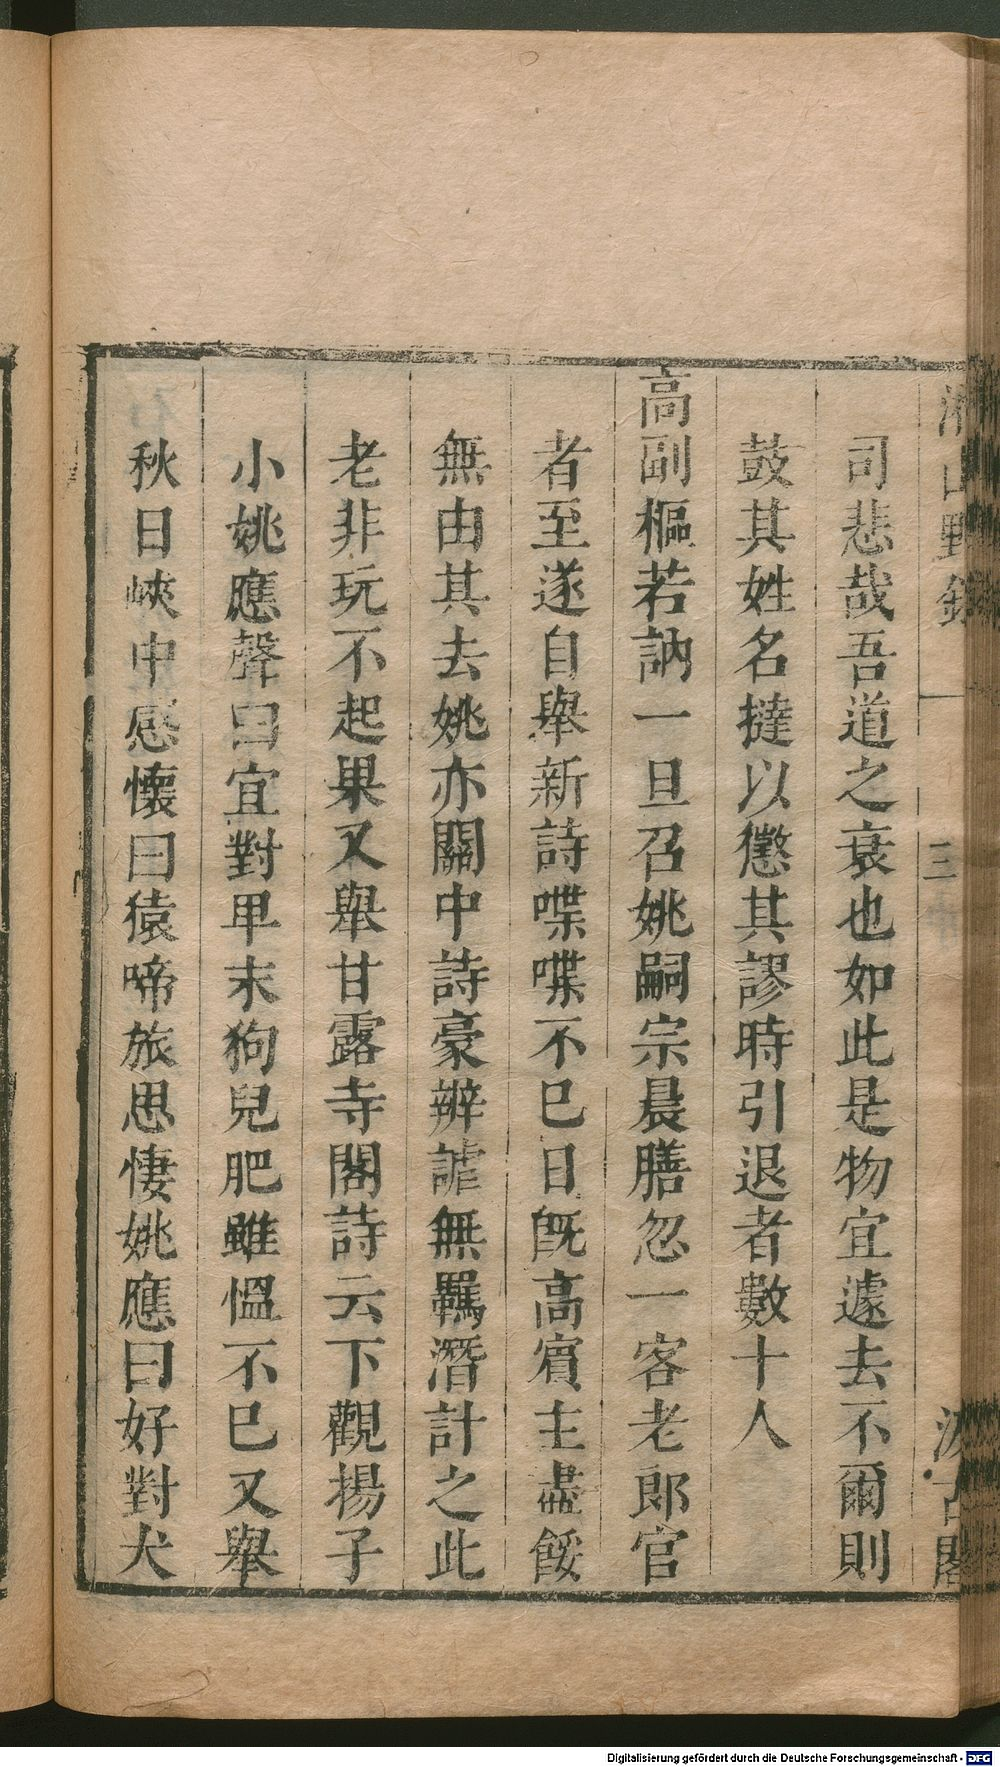 湘山野錄 三 汲古閣
司悲哉吾道之衰也如此是物宜遽去不爾則
鼓其姓名撻以懲其謬時引退者數十人
高副樞若訥一旦召姚嗣宗晨膳忽一客老郎官
者至遂自舉新詩喋喋不已日旣高賔主盡餒
無由其去姚亦關中詩豪辨謔無羈潛計之此
老非玩不起果又舉甘露寺閣詩云下觀揚子
小姚應聲曰宜對甲末狗兒肥雖慍不已又舉
秋日峽中感懷曰猿啼旅思悽姚應曰好對犬
Digitalisierung gefördert durch die Deutsche Forschungsgemeinschaft - DFG